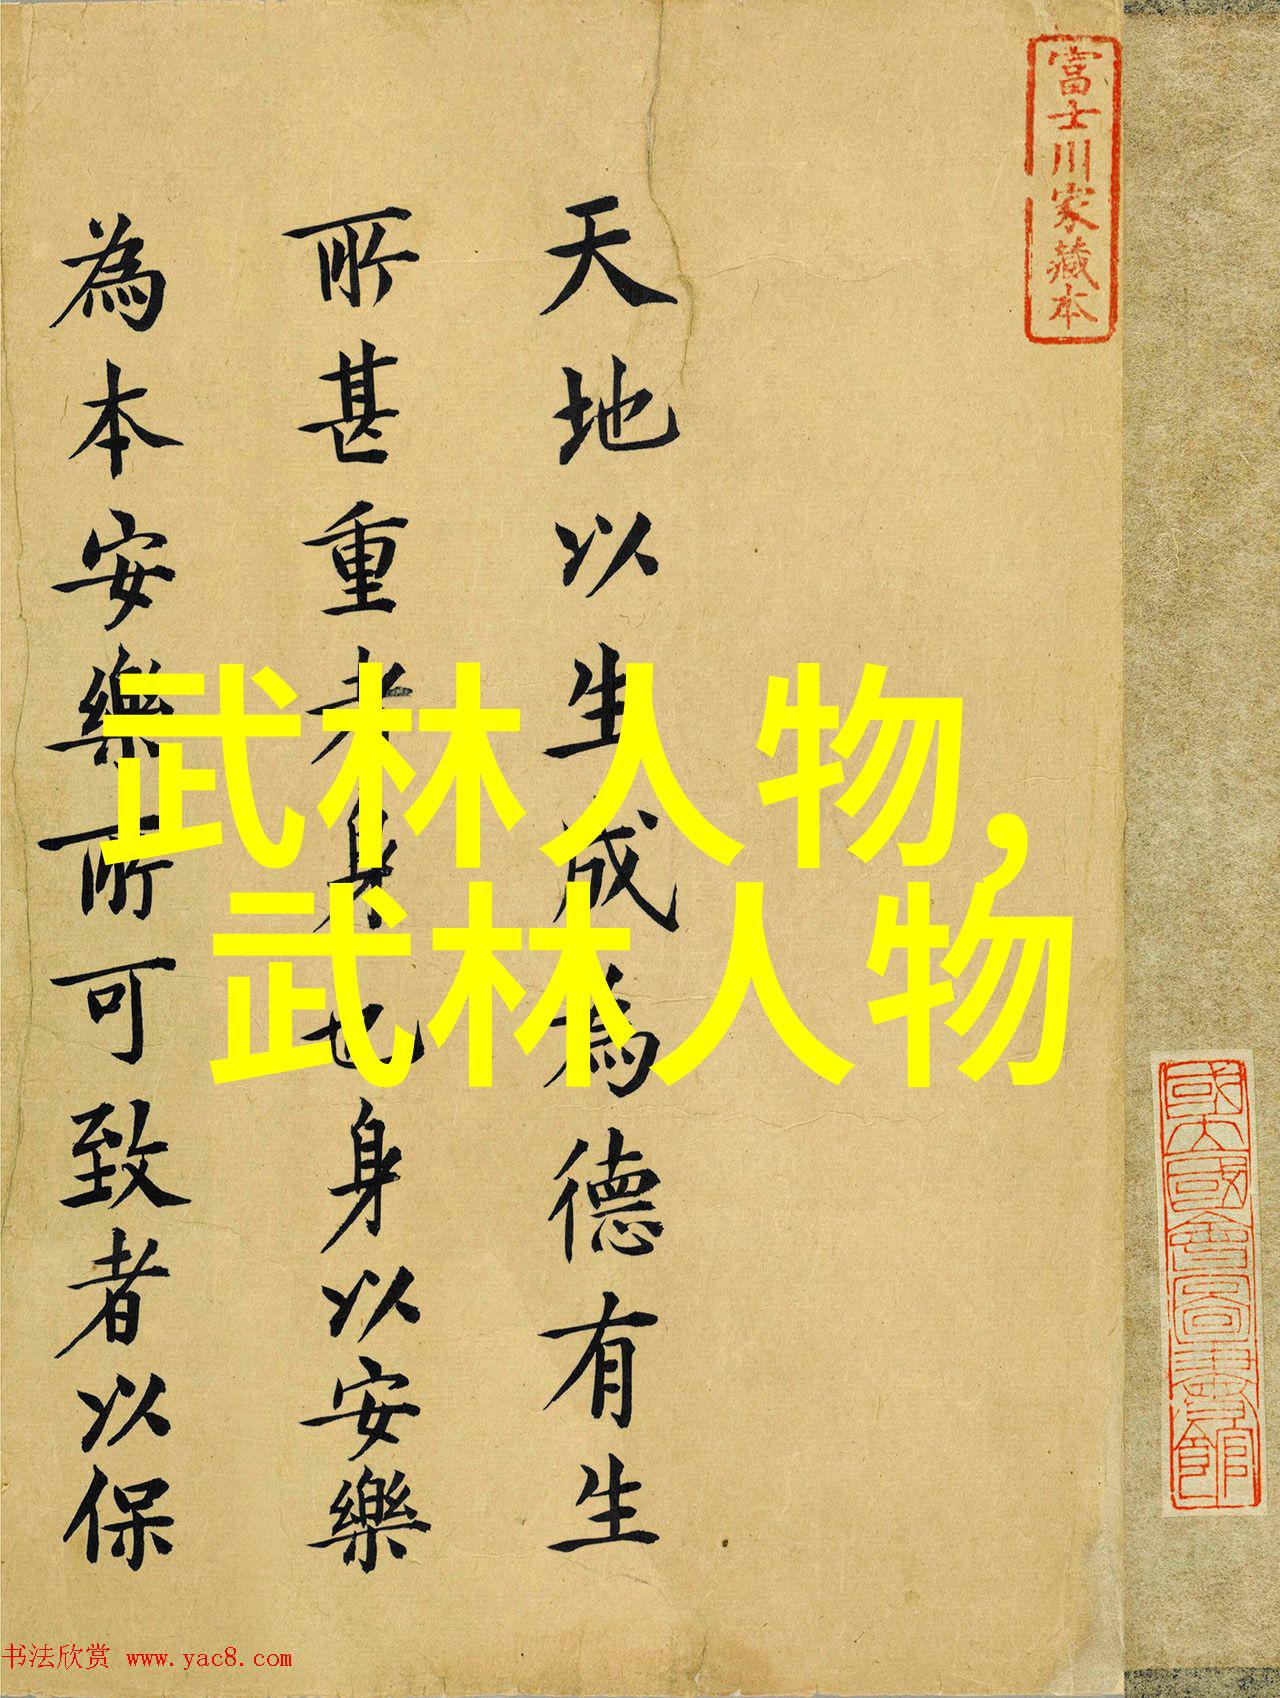 富士川家藏本
天地以生成為德有生
所甚重者身也身以安樂
為本安樂所可致者以保
武林人物,
武林人物
书法欣赏 www.yac8.com